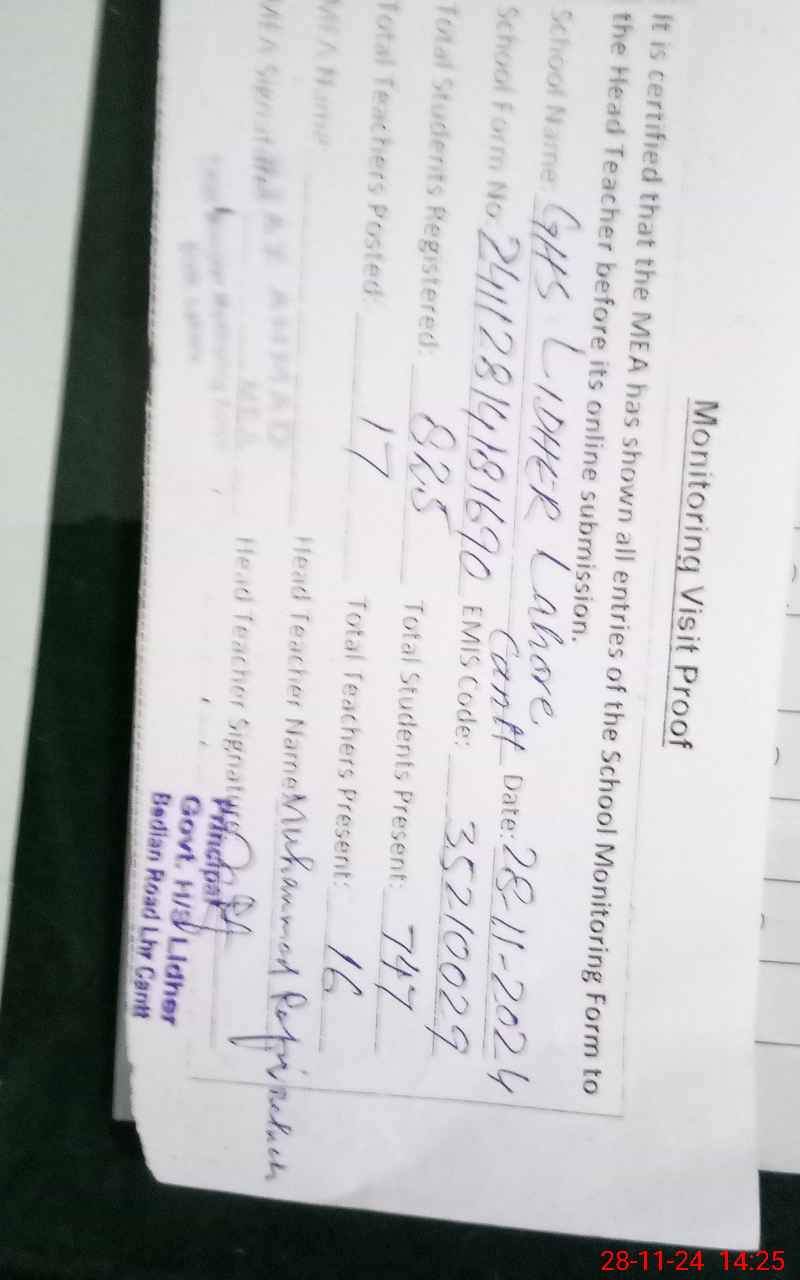 Monitoring Visit Proof
It is certified that the MEA has shown all entries of the School Monitoring Form to
the Head Teacher before its online submission.
School Name: GHS LIDHER Lahore Cantt Date: 28-11-2024
School Form No: 24112814181690 EMIS Code: 35210029
Total Students Registered: 825 Total Students Present: 747
Total Teachers Posted: 17 Total Teachers Present: 16
MEA Name Head Teacher Name: Muhammad
AHMAD
MEA Signat Head Teacher Signature
MEA
Principal
Govt. H/S Lidher
Bedian Road Lhr Cantt
28-11-24 14:25